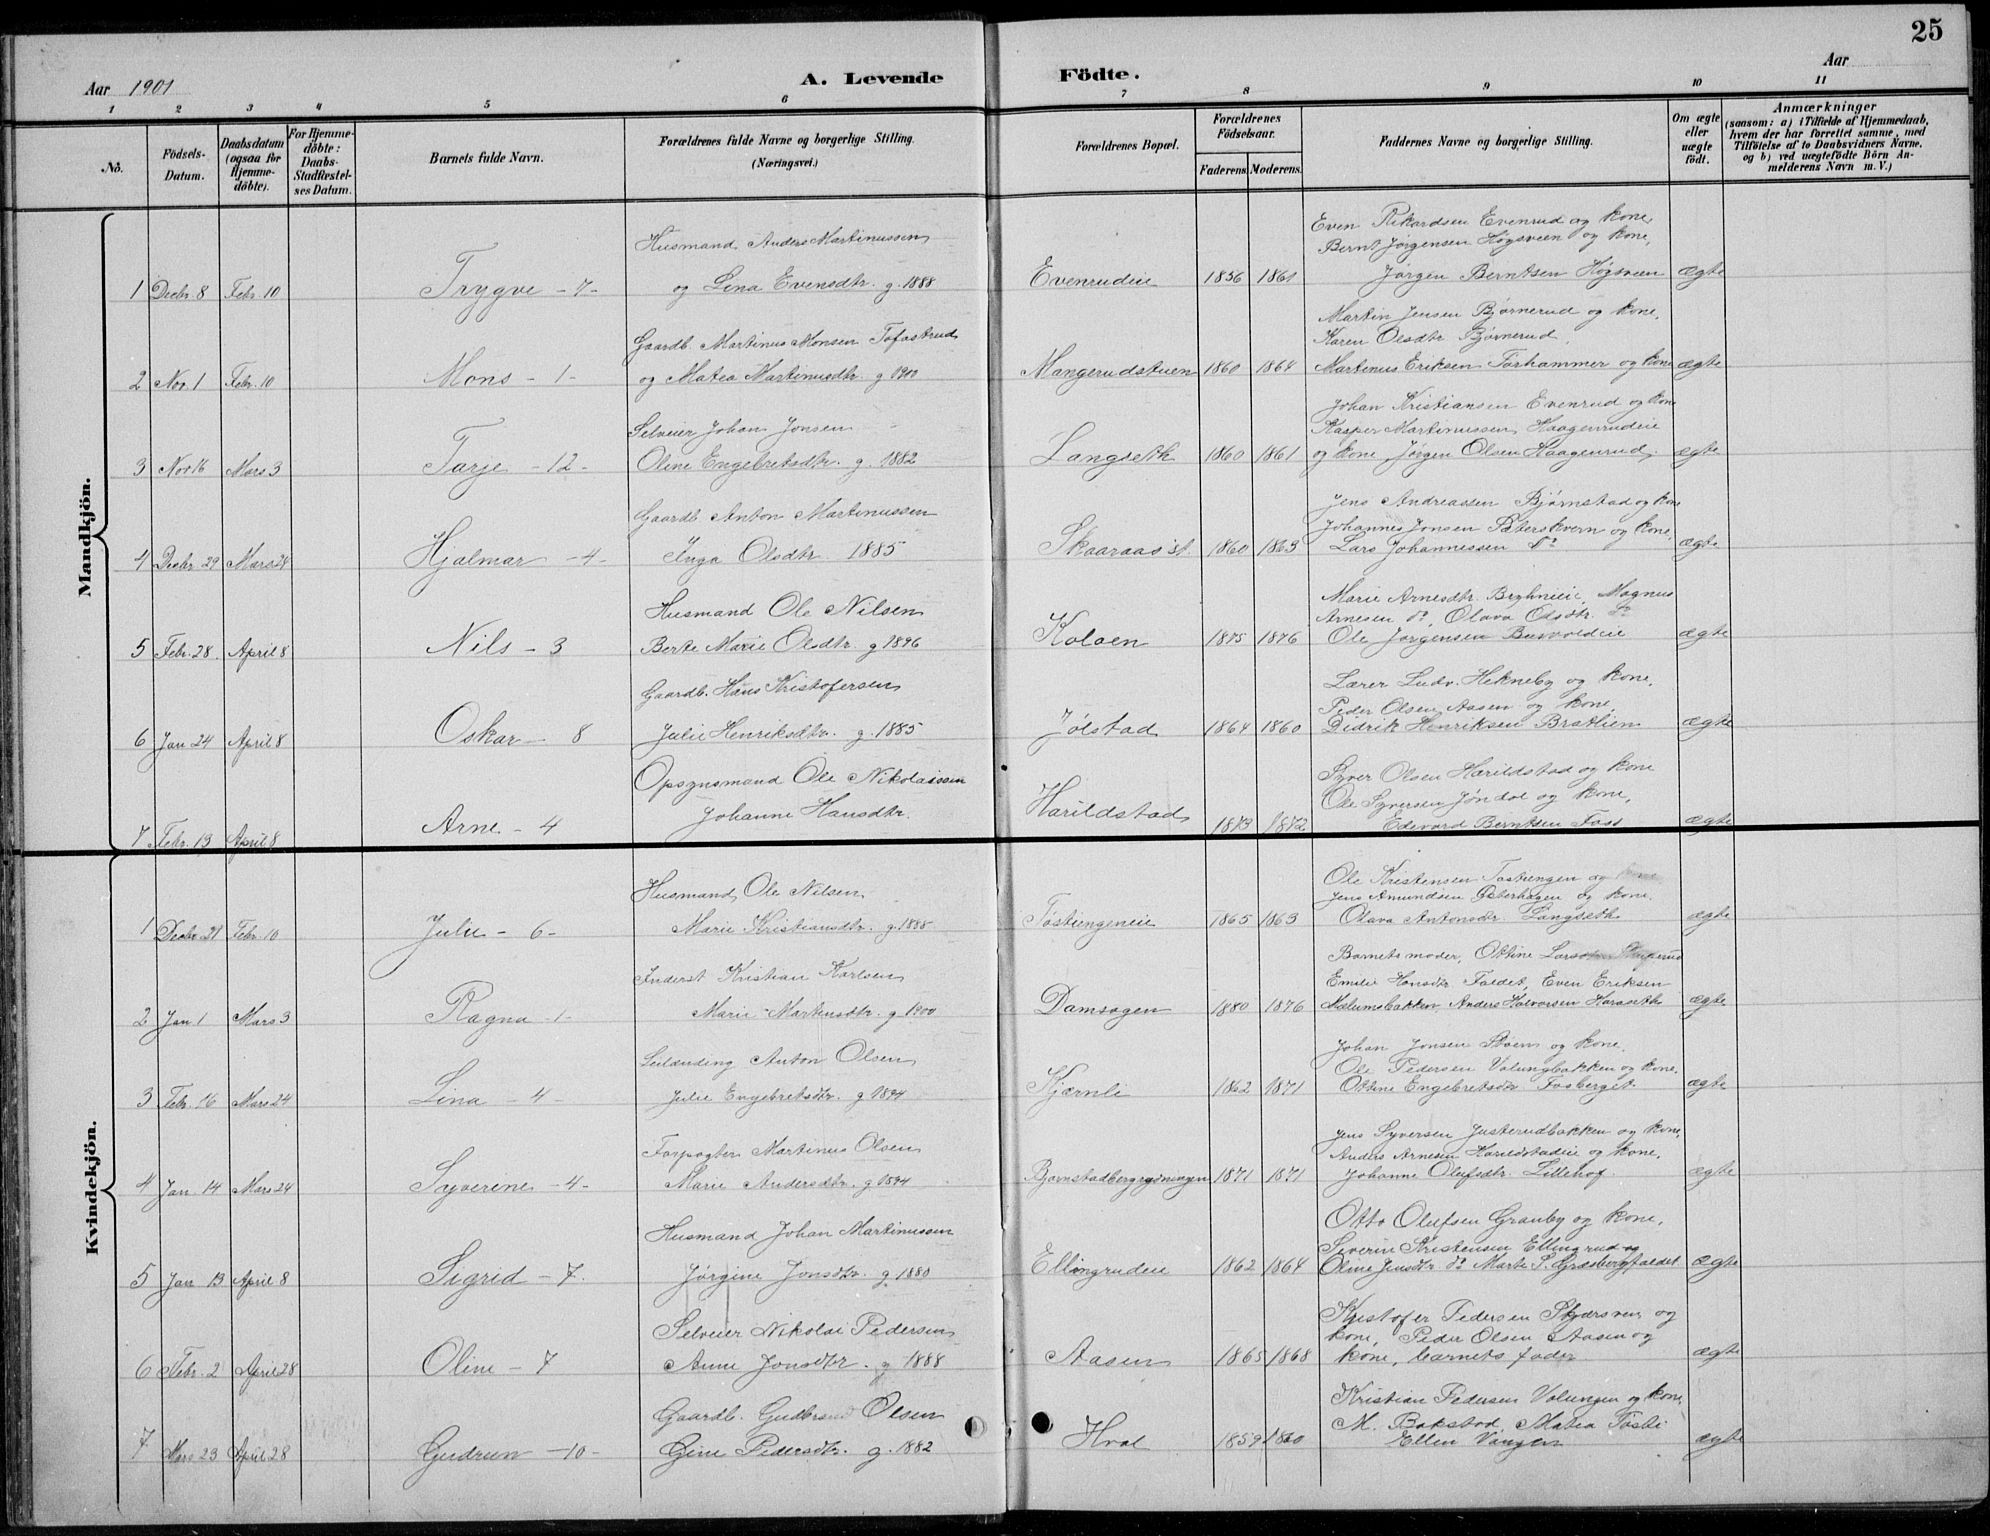 25
Aar 1901
A. Levende
Födte.
Aar
1 2 3 4 5 6 7 8 9 10 11
No.
Födsels-Datum.
Daabsdatum (ogsaa för Hjemme-döbte).
For Hjemme-döbte: Daabs-Stadfæstel-ses Datum.
Barnets fulde Navn.
Forældrenes fulde Navne og borgerlige Stilling.
(Næringsvei.)
Forældrenes Bopæl.
Forældrenes Födselsaar.
Faderens. Moderens.
Faddernes Navne og borgerlige Stilling.
Om ægte eller uægte födt.
Anmærkninger
(saasom: a) i Tilfælde af Hjemmedaab,
hvem der har forrettet samme, med
Tilföielse af to Daabsvidners Navne.
og b) ved uægtefödte Börn An-
melderens Navn m. V.)
Mandkjön.
Husmand Anders Martinussen
Even Rikardsen Evenrud og kone,
Bernt Jørgensen Høgsveen og kone,
1 Decbr. 8 Febr. 10 Trygve - 7 - og Lina Evensdtr. g. 1888 Evenrudeie 1856 1861 Jørgen Berntsen Høgsveen ægte
Gaardb. Martinus Monsen Tofastrud
Martin Jensen Bjørnerud og kone,
Karen Olsdtr Bjørnerud,
2 Nov. 1 Febr. 10 Mons - 1 - og Matea Martinusdtr. g 1900 Mangerudstuen 1860 1864 Martinus Eriksen Torhammer og kone ægte
Selveier Johan Jonsen
Johan Kristiansen Evenrud og kone
Kasper Martinussen Haagenrudeie
3 Nov 16 Mars 3 Tarje - 12 - Oline Engebretsdtr. g. 1882 Langseth 1860 1861 og kone Jørgen Olsen Haagenrud. ægte
Gaardb. Anton Martinussen
Jens Andreassen Bjørnstad og kone
Johannes Jonsen Peterskvern og kone,
4 Decbr. 29 Mars 24 Hjalmar - 4 - Inga Olsdtr. 1885 Skaaraas st. 1860 1863 Lars Johannessen do ægte
Husmand Ole Nilsen
Marie Arnesdtr. Bryhnieie, Magnus
Arnesen do, Olava Olsdtr. do
5 Febr. 28 April 8 Nils - 3 Berte Marie Olsdtr. g 1896 Koloen 1875 1876 Ole Jørgensen Busvoldeie ægte
Gaardb. Hans Kristofersen
Lærer Ludv. Hekneby og kone,
Peder Olsen Aasen og kone,
6 Jan 24 April 8 Oskar - 8 Julie Henriksdtr. g. 1885 Jølstad 1864 1860 Didrik Henriksen Bratlien ægte
Opsynsmand Ole Nikolaissen
Syver Olsen Harildstad og kone
Ole Syversen Jøndal og kone,
7 Febr. 13 April 8 Arne - 4 Johanne Hansdtr. Harildstad 1873 1872 Edevard Berntsen Foss ægte
Kvindekjön.
Husmand Ole Nilsen
Ole Kristensen Tostiengen og kone
Jens Amundsen Østerhagen og kone.
1 Decbr. 21 Febr. 10 Julie - 6 - Marie Kristiansdtr. g. 1885 Tostiengeneie 1865 1863 Olava Antonsdtr. Langseth ægte
Inderst Kristian Karlsen
Barnets moder, Ottine Larsdtr
Emilie Hansdtr Faldet, Even Eriksen
2 Jan 1 Mars 3 Ragna - 1 - Marie Martinsdtr. g 1900 Damsagen 1880 1876 Mælumsbakken, Anders Halvorsen Haraseth ægte
Leilænding Anton Olsen
Johan Jonsen Støen og kone.
Ole Pedersen Volungbakken og kone.
3 Febr. 16 Mars 24 Lina - 4 - Julie Engebretsdtr. g 1894 Kjærnli 1862 1871 Ottine Engebretsdtr Fosberget ægte
Forpagter Martinus Olsen
Jens Syversen Justerudbakken og kone,
Anders Arnesen Harildstadeie og kone,
4 Jan. 14 Mars 24 Syverine - 4 - Marie Andersdtr. g 1894 Bjørnstadbergrydningen 1871 1871 Johanne Olufsdtr. Lillehof. ægte
Husmand Johan Martinussen
Otto Olufsen Granby og kone,
Severin Kristensen Ellingrud og
5 Jan 13 April 8 Sigrid - 7. Jørgine Jonsdtr. g. 1880 Ellingrudeie 1862 1864 Oline Jensdtr do Marte S. Græsbergfaldet ægte
Selveier Nikolai Pedersen
Kristofer Pedersen Skjærsven og
kone, Peder Olsen Aasen og
6 Febr. 2 April 28 Oline - 7 Anne Jonsdtr. g 1888 Aasen 1865 1868 kone, barnets fader ægte
Gaardb. Gudbrand Olsen
Kristian Pedersen Volungen og kone,
M. Bakstad, Matea Tosti
7 Mars 23 April 28 Gudrun - 10 - Gine Pedersdtr. g. 1882 Hval 1859 1860 Ellen Vangen ægte